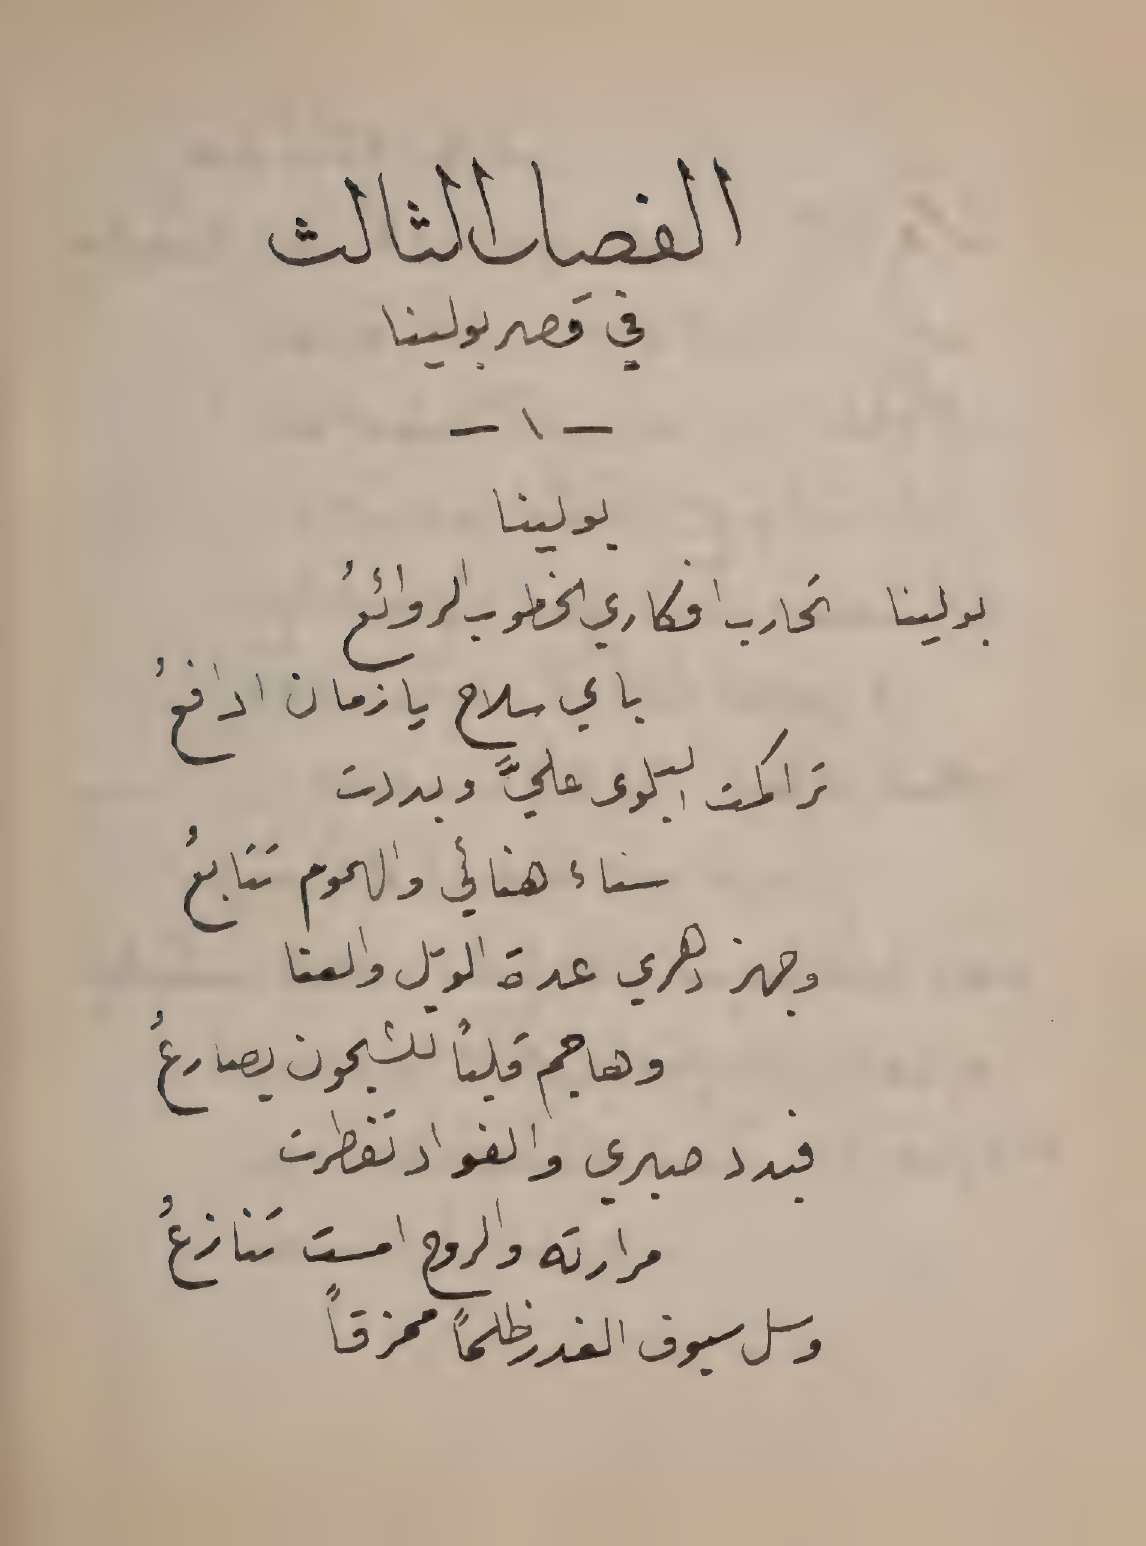 الفصل الثالث
في قصر بولينا
— ١ —
بولينا
بولينا تحارب افكاري الخطوب الروائعُ
باي سلاح يا زمان ادافعُ
تراكمت البلوى عليَّ وبددت
سناء هنائي والهموم تتابعُ
وجهز دهري عدة الويل والعنا
وهاجم قلباً للشجون يصارعُ
فبدد صبري والفواد تفطرت
مرارته والروح امست تنازعُ
وسل سيوف الغدر ظلماً ممزقاً